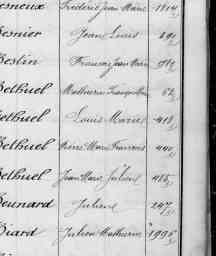 Frédéric Jean Marie 1814
esnier Jean Louis 891
Beslin François Jean Marie
Bethuel Mathurin François Marie 62
Bethuel Louis Marie 418
Bethuel Pierre Marie François 440
Bethuel Jean Marie Julien 485
Beunard Julien 247
Biard Julien Mathurin 1996